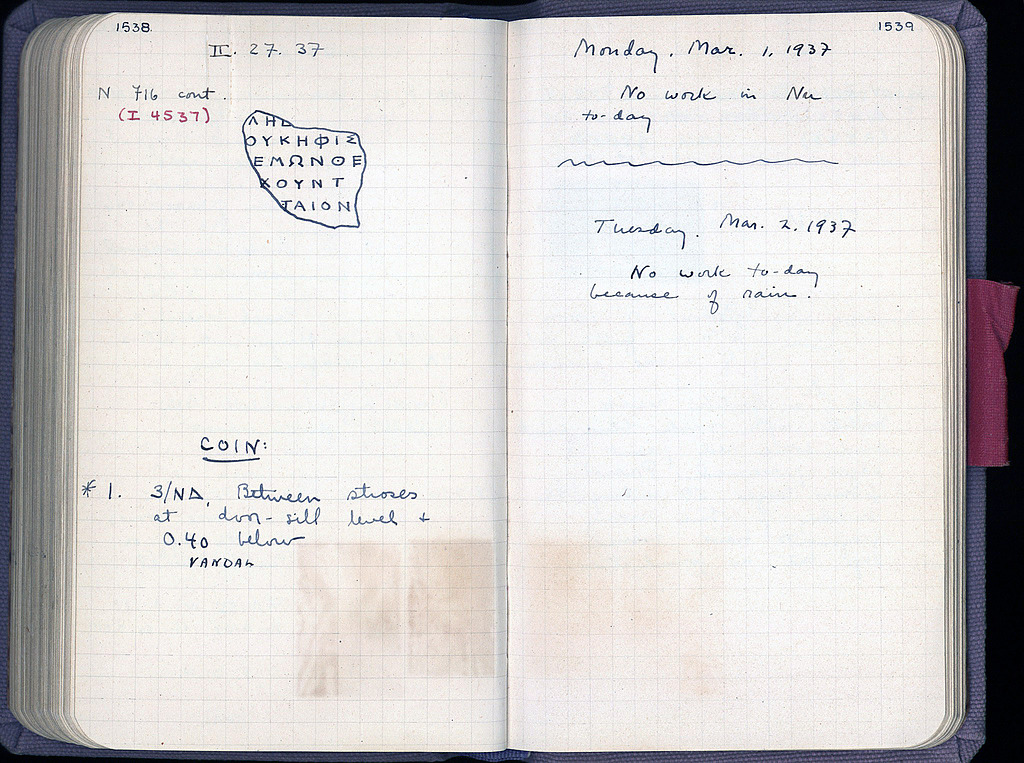 1538
II. 27. 37
N 716 cont.
(I 4537)
ΛΗΔ
ΟΥΚΗΦΙΣ
ΕΜΩΝΘΕ
ΧΟΥΝΤ
ΤΑΙΟΝ
COIN:
* 1. 3/ΝΔ, Between stroses
at door-sill level +
0.40 below
VANDAL
1539
Monday, Mar. 1, 1937
No work in Nu
to-day
Tuesday. Mar. 2, 1937
No work to-day
because of rain.